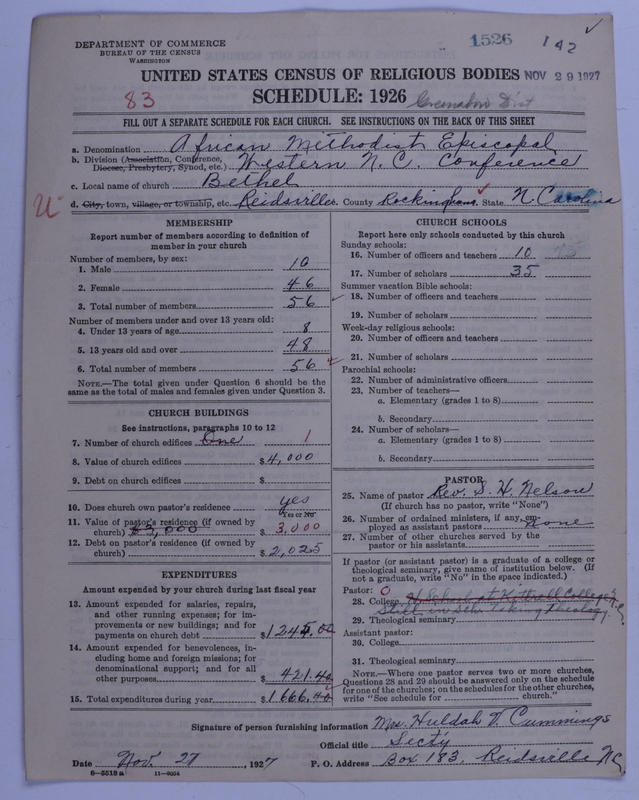 1526
142
DEPARTMENT OF COMMERCE
BUREAU OF THE CENSUS
WASHINGTON
UNITED STATES CENSUS OF RELIGIOUS BODIES NOV 29 1927
83
SCHEDULE: 1926 Greensboro Dist
FILL OUT A SEPARATE SCHEDULE FOR EACH CHURCH. SEE INSTRUCTIONS ON THE BACK OF THIS SHEET
a. Denomination African Methodist Episcopal
b. Division (Association, Conference, Diocese, Presbytery, Synod, etc.) Western N.C. Conference
c. Local name of church Bethel
d. City, town, village, or township, etc. Reidsville County Rockingham State N. Carolina
MEMBERSHIP
Report number of members according to definition of
member in your church
Number of members, by sex:
1. Male 10
2. Female 46
3. Total number of members 56
Number of members under and over 13 years old:
4. Under 13 years of age 8
5. 13 years old and over 48
6. Total number of members 56
NOTE.—The total given under Question 6 should be the
same as the total of males and females given under Question 3.
CHURCH BUILDINGS
See instructions, paragraphs 10 to 12
7. Number of church edifices One 1
8. Value of church edifices $4,000
9. Debt on church edifices $
10. Does church own pastor's residence yes
Yes or No
11. Value of pastor's residence (if owned by
church) $3,000 $ 3,000
12. Debt on pastor's residence (if owned by
church) $2,025
EXPENDITURES
Amount expended by your church during last fiscal year
13. Amount expended for salaries, repairs,
and other running expenses; for im-
provements or new buildings; and for
payments on church debt $1245.00
14. Amount expended for benevolences, in-
cluding home and foreign missions; for
denominational support; and for all
other purposes 421.40
15. Total expenditures during year $1666.40
CHURCH SCHOOLS
Report here only schools conducted by this church
Sunday schools:
16. Number of officers and teachers 10
17. Number of scholars 35
Summer vacation Bible schools:
18. Number of officers and teachers
19. Number of scholars
Week-day religious schools:
20. Number of officers and teachers
21. Number of scholars
Parochial schools:
22. Number of administrative officers
23. Number of teachers—
a. Elementary (grades 1 to 8)
b. Secondary
24. Number of scholars—
a. Elementary (grades 1 to 8)
b. Secondary
PASTOR
25. Name of pastor Rev. S. H. Nelson
(If church has no pastor, write "None")
26. Number of ordained ministers, if any, em-
ployed as assistant pastors none
27. Number of other churches served by the
pastor or his assistants
If pastor (or assistant pastor) is a graduate of a college or
theological seminary, give name of institution below. (If
not a graduate, write "No" in the space indicated.)
Pastor: O
28. College H. School at Kittrell College N.C.
Still in Sch. taking Theology
29. Theological seminary
Assistant pastor:
30. College
31. Theological seminary
NOTE.—Where one pastor serves two or more churches,
Questions 28 and 29 should be answered only on the schedule
for one of the churches; on the schedules for the other churches,
write "See schedule for church."
Signature of person furnishing information Mrs. Huldah V. Cummings
Official title Secty
Date Nov. 27, 1927 P. O. Address Box 183, Reidsville NC.
8—5518a 11—9054